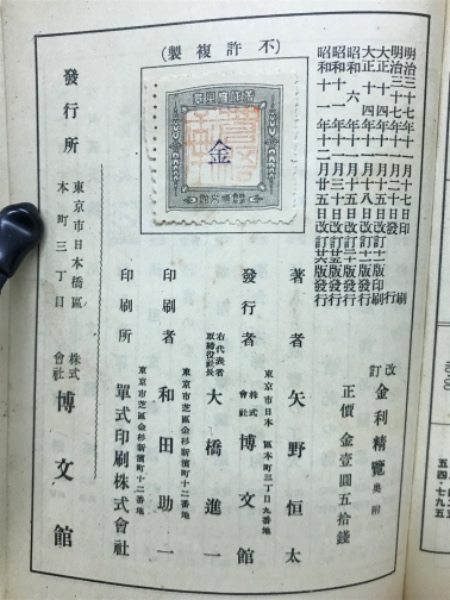 明治三十七年十一月十七日印刷
明治三十七年十一月二十日發行
大正十四年十一月十五日改訂十二版印刷
大正十四年十一月十八日改訂十二版發行
昭和六年十一月十五日改訂二十版發行
昭和十一年十一月三十日改訂廿五版發行
昭和十一年十二月廿五日改訂廿六版發行
(不許複製)
金
改訂 金利精覽 奥附
正價 金壹圓五拾錢
著者 矢野恒太
東京市日本 區本町三丁目九番地
發行者 株式會社 博文館
右代表者 取締役社長 大橋進一
東京市芝區金杉新濱町十二番地
印刷者 和田助一
東京市芝區金杉新濱町十二番地
印刷所 單式印刷株式會社
發行所 東京市日本橋區本町三丁目 株式會社 博文館
五四・七九五